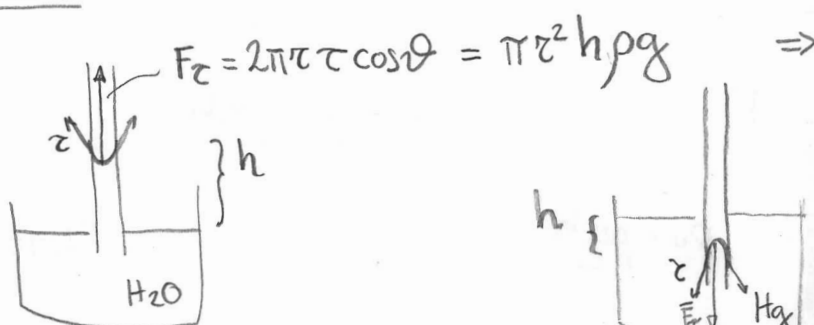 F_τ = 2πrτcosϑ = πr²hρg ⇒
τ
}h
h {
H₂O
τ
F̅_τ
Hg